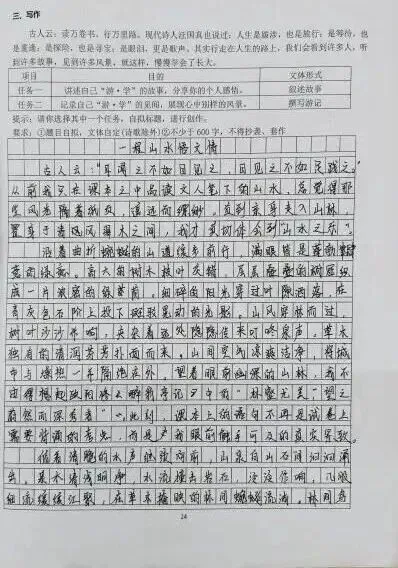 三、写作
古人云：读万卷书，行万里路。现代诗人汪国真也说过：人生是跋涉，也是旅行；是等待，也
是重逢；是探险，也是寻宝；是眼泪，更是歌声。其实行走在人生的路上，我们会看到许多人，听
到许多故事，见到许多风景，就这样，慢慢学会了长大。
项目 目的 文体形式
任务一 讲述自己“游·学”的故事，分享你的个人感悟。 叙述故事
任务二 记录自己“游·学”的见闻，展现心中别样的风景。 撰写游记
提示：请你选择其中一个任务，自拟标题，进行创作。
要求：①题目自拟，文体自定(诗歌除外)②不少于 600 字，不得抄袭、套作
一程山水悟文情
古人云：“耳闻之不如目见之，目见之不如足践之。”
从前我只在课本之中品读文人笔下的山水，总觉得那
些风光隔着纸页，遥远而缥缈。直到亲身走入山林，
置身于青风草木之间，我才真切体会到“山水之乐”。
沿着曲折蜿蜒的山道缓步前行，满眼皆是蓬勃
的绿意。高大的树木枝叶交错，层层叠叠的树冠织
成一片浓密的绿荫。细碎的阳光穿过叶隙洒落，在
青灰色石阶上投下斑驳晃动的光影。山风穿林而过，
树叶沙沙作响，夹杂着远处隐隐传来叮咚泉声。草木
独有的清润芳芳扑面而来。山间空气凉爽洁净，将城
市中与燥热一并隔绝在外，望着眼前幽深的山林，我不
由得想起欧阳修《醉翁亭记》中的“林壑尤美，望之
蔚然而深秀者”。此刻，课本上的语句不再是试卷上
需要背诵的考点，而是在我眼前触手可及的真实景致。
循着清脆的水声继续向前，山泉自山石间汩汩涌
出。泉水清浅明净，水流撞击岩石，泠泠作响，几股
细流缓缓汇聚，在草木掩映的林间蜿蜒流淌。林间鸟
24